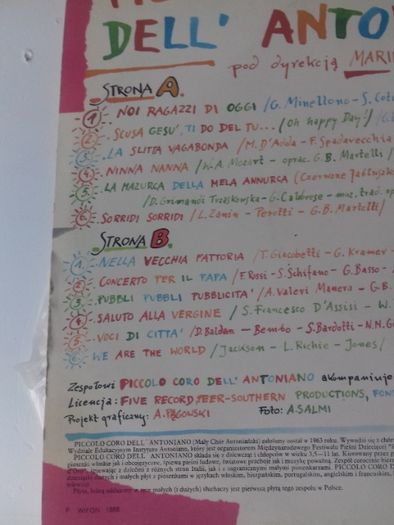 PICCOLO
DELL' ANTONI
pod dyrekcją MARI
STRONA A.
1 NOI RAGAZZI DI OGGI /G. Minellono - S. Cotu
2 SCUSA GESU', TI DO DEL TU... /Oh happy Day!/
3 LA SLITTA VAGABONDA /M. D'Avola - F. Spadavecchia
4 NINNA NANNA /W.A. Mozart - oprac. G.B. Martelli/
5 LA MAZURCA DELLA MELA ANNURCA (Czerwone Jabłuszko
/D. Grimanôs Trzaskowska - G. Calabrese - muz. trad. op
6 SORRIDI SORRIDI /L. Zanin - Terotti - G.B. Martelli/
STRONA B.
1 NELLA VECCHIA FATTORIA /T. Giacobetti - G. Kramer -
2 CONCERTO PER IL PAPA /F. Rossi - S. Schifano - G. Basso -
3 PUBBLI PUBBLI PUBBLICITA' /A. Valeri Manera - G.B.
4 SALUTO ALLA VERGINE / S. Francesco D'Assisi - W.
5 VOCI DI CITTA' /D. Baldan - Bembo - S. Bardotti - N.N. G
6 WE ARE THE WORLD /Jackson - L. Richie - Jones/
Zespołowi PICCOLO CORO DELL' ANTONIANO akompaniuje
Licencja: FIVE RECORD, PEER-SOUTHERN PRODUCTIONS, FON
Projekt graficzny: A. PĄGOWSKI Foto: A. SALMI
PICCOLO CORO DELL' ANTONIANO (Mały Chór Antoniański) założony został w 1963 roku. Wywodzi się z chór
Wydziale Edukacyjnym Instytutu Antoniano, który jest organizatorem Międzynarodowego Festiwalu Pieśni Dziecięcej
PICCOLO CORO DELL' ANTONIANO składa się z dziewcząt i chłopców w wieku 3,5—11 lat. Kierowany przez p
Płyta, którą oddajemy w ręce małych (i dużych) słuchaczy jest pierwszą płytą tego zespołu w Polsce.
P WIFON 1988